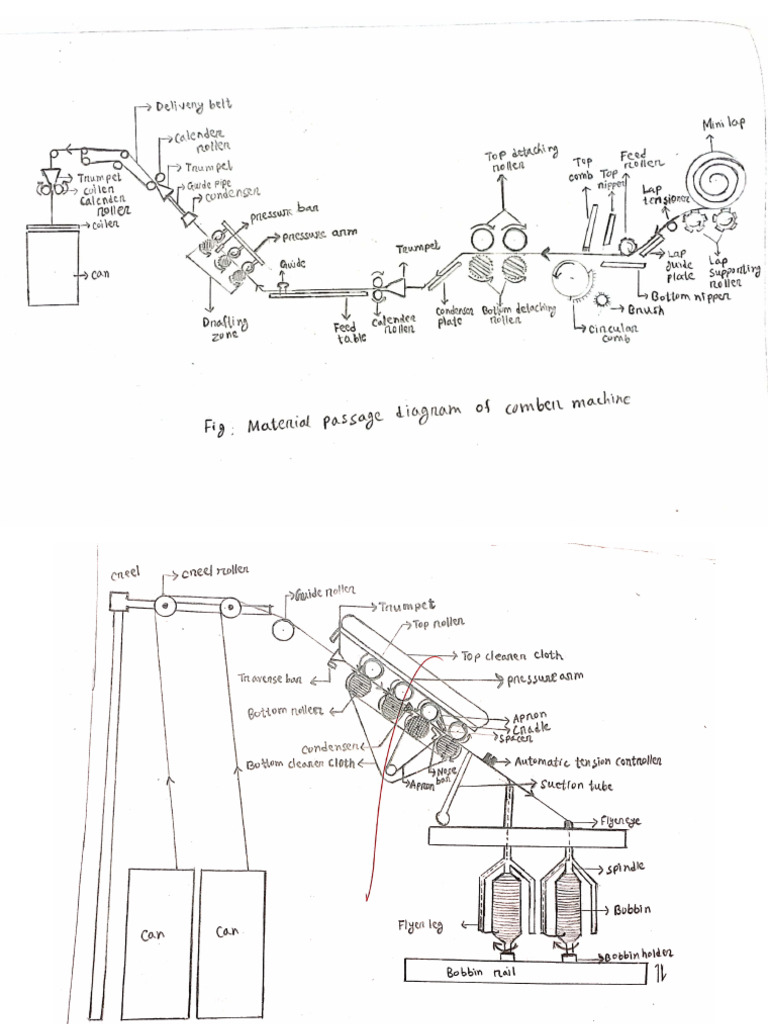 Delivery belt
Calender
roller
Trumpet
Guide pipe
condenser
Trumpet
coiler
Calender
roller
coiler
can
pressure bar
pressure arm
Guide
Drafting
zone
Feed
table
Calender
roller
Trumpet
Condenser
plate
Bottom detaching
roller
Top detaching
roller
Top
comb
Top
nipper
Feed
roller
Lap
tensioner
Mini lap
Lap
guide
plate
Lap
supporting
roller
Bottom nipper
Brush
Circular
comb
Fig: Material passage diagram of comber machine
creel
creel roller
Guide roller
Trumpet
Top roller
Top cleaner cloth
pressure arm
Traverse bar
Bottom roller
Apron
Cradle
spacer
Condenser
Bottom cleaner cloth
Apron
Nose
bar
Automatic tension controller
Suction tube
Flyer eye
spindle
Bobbin
Flyer leg
Bobbin holder
Bobbin rail
Can
Can